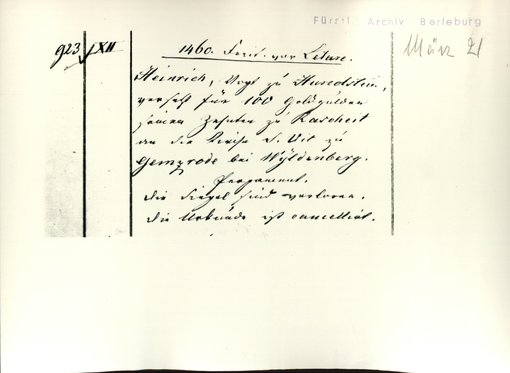 Fürstl. Archiv Berleburg
März 21
923 XII
1460. Freit. vor Letare.
Heinrich, Vogt zu
versetzt für 100 Goldgulden
seinen Zehnten zu Rascheit
an die Kirche S. Vit zu
Gemzrode bei Wyldenberg.
Pergament.
Die Siegel sind verloren.
Die Urkunde ist cancellirt.